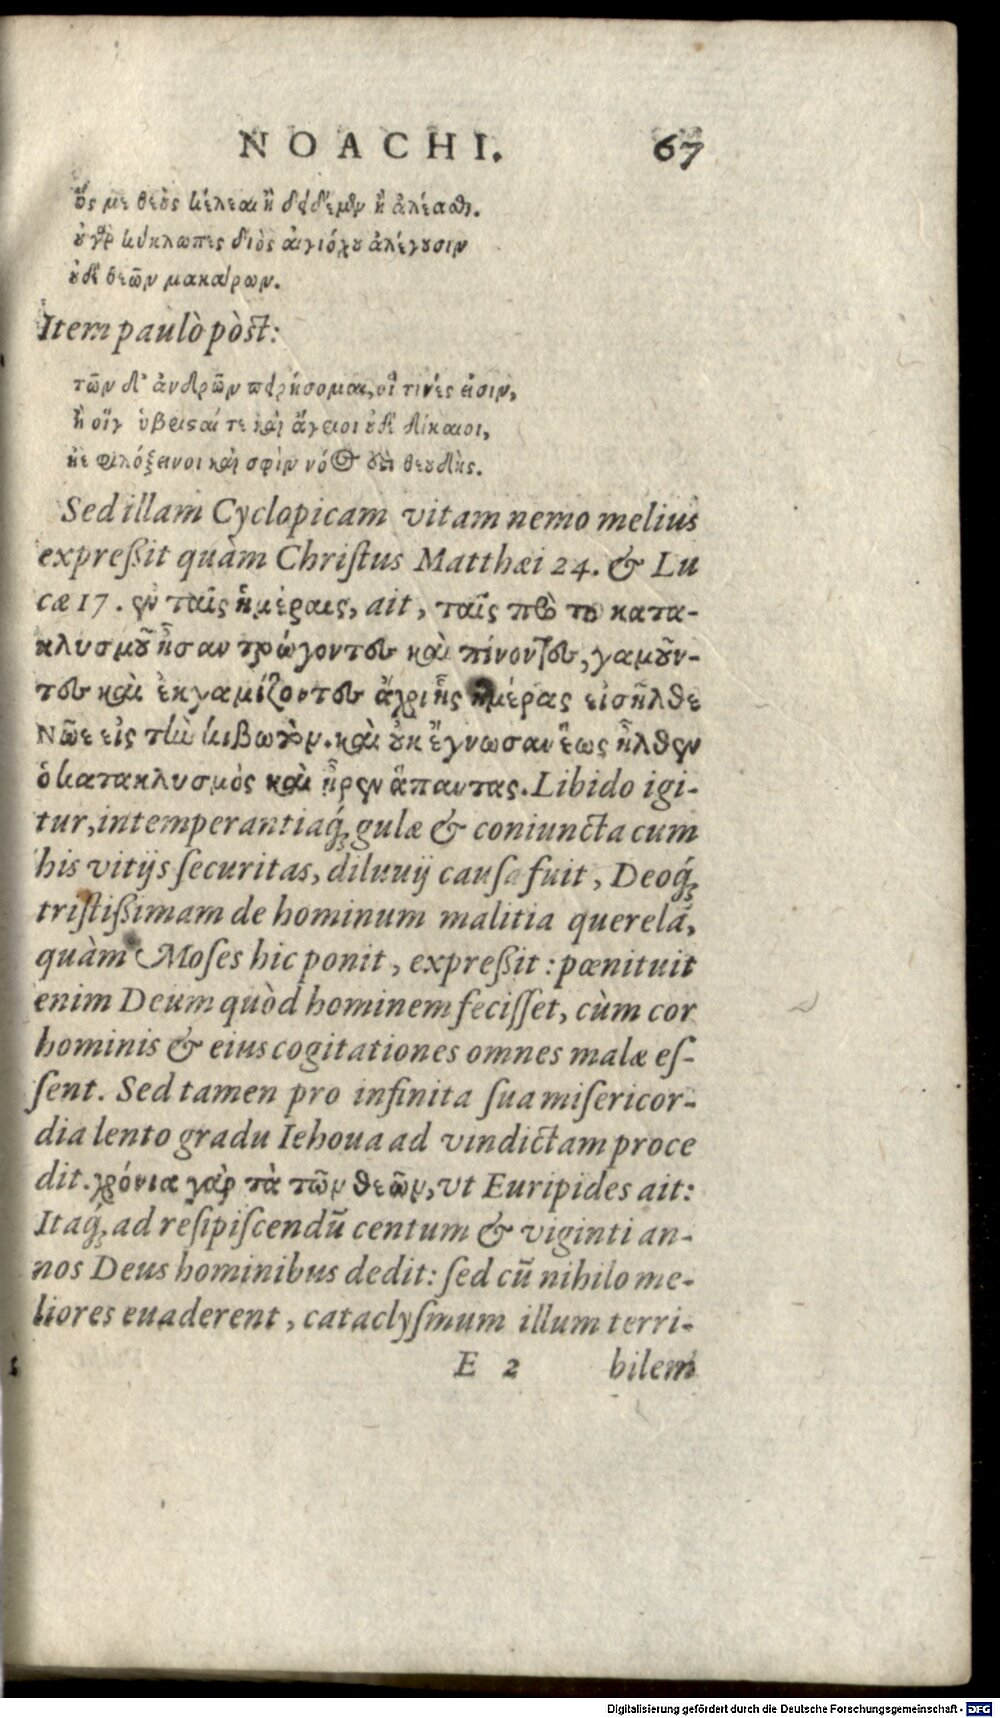 NOACHI. 67
ὅς με θεοὺς κέλεαι ἢ δειδίμεν ἢ ἀλέασθαι.
οὐ γὰρ κύκλωπες διὸς αἰγιόχου ἀλέγουσιν
οὐδὲ θεῶν μακάρων.
Item paulò pòst:
τῶν δ' ἀνδρῶν πειρήσομαι, οἵ τινές εἰσιν,
ἢ οἵγ ὑβρισαί τε καὶ ἄγριοι οὐδὲ δίκαιοι,
ἠὲ φιλόξεινοι καὶ σφὶν νόος ἐστὶ θεουδής.
Sed illam Cyclopicam vitam nemo melius
expreßit quàm Chriſtus Matthæi 24. & Lu
cæ 17. ἐν ταῖς ἡμέραις, ait, ταῖς πρὸ τοῦ κατα-
κλυσμοῦ ἦσαν τρώγοντες καὶ πίνοντες, γαμοῦν-
τες καὶ ἐκγαμίζοντες ἄχρι ἧς ἡμέρας εἰσῆλθε
Νῶε εἰς τὴν κιβωτὸν. καὶ οὐκ ἔγνωσαν ἕως ἦλθεν
ὁ κατακλυσμὸς καὶ ἦρεν ἅπαντας. Libido igi-
tur, intemperantiaq́; gulæ & coniuncta cum
his vitijs ſecuritas, diluuij cauſa fuit, Deoq́;
triſtißimam de hominum malitia querelã,
quàm Moſes hic ponit, expreßit: pœnituit
enim Deum quòd hominem feciſſet, cùm cor
hominis & eius cogitationes omnes malæ eſ-
ſent. Sed tamen pro infinita ſua miſericor-
dia lento gradu Iehoua ad vindictam proce
dit. χρόνια γὰρ τὰ τῶν θεῶν, vt Euripides ait:
Itaq́; ad reſipiſcendũ centum & viginti an-
nos Deus hominibus dedit: ſed cũ nihilo me-
liores euaderent, cataclyſmum illum terri-
E 2 bilem
Digitalisierung gefördert durch die Deutsche Forschungsgemeinschaft - DFG